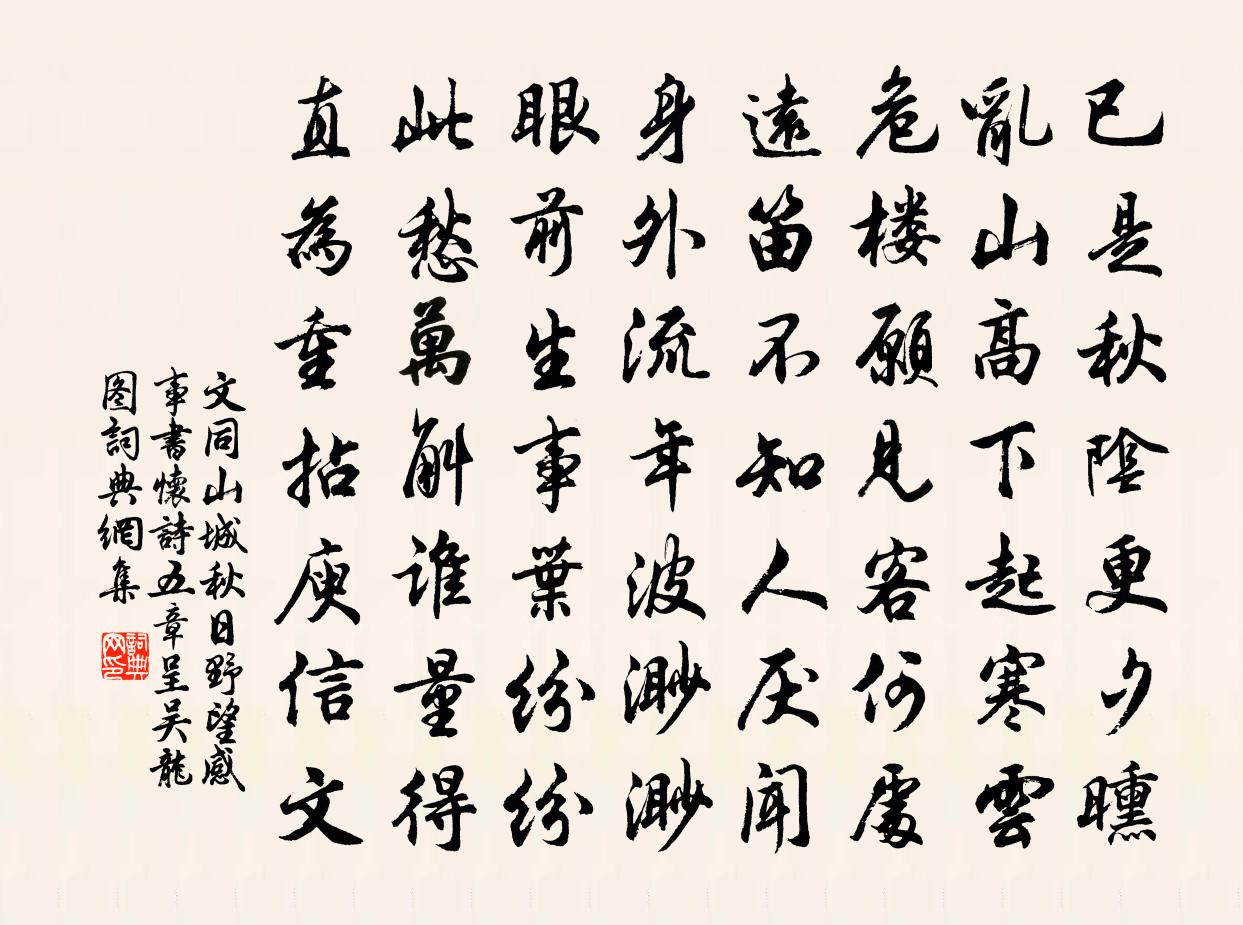 已是秋陰更夕曛
亂山高下起寒雲
危楼願見客何處
遠笛不知人厌聞
身外流年波渺渺
眼前生事葉紛紛
此愁萬斛誰量得
直為重拈庾信文
文同山城秋日野望感
事書懷詩五章呈吴龍
图詞典網集
詞典
网印